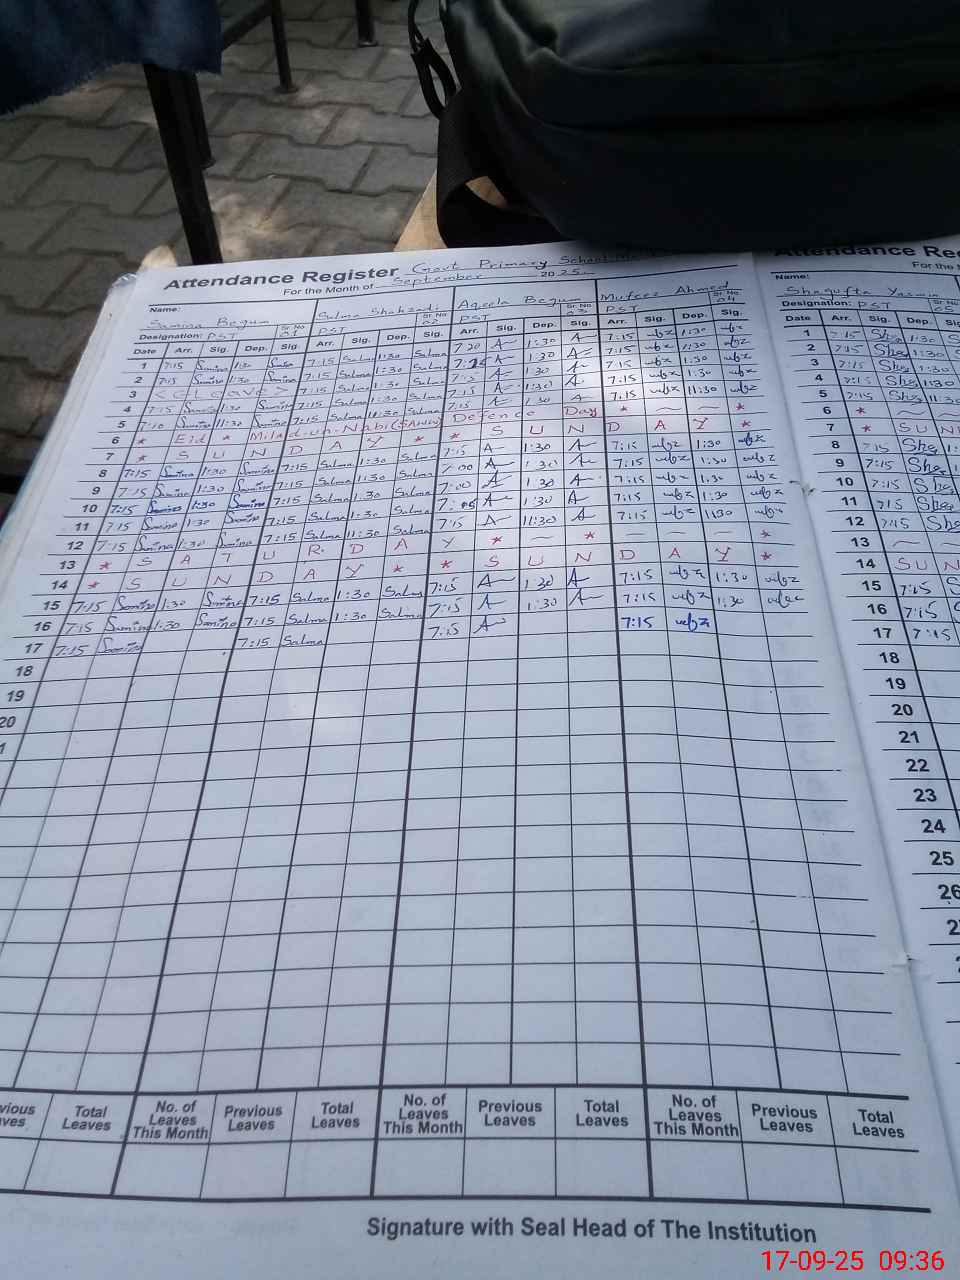 Attendance Register Govt Primary School
For the Month of September 2025
Name: Samina Begum Salma Shahzadi Aqeela Begum Mufeez Ahmed
Designation: PST Sr. No 01 PST Sr. No 02 PST Sr. No 03 PST Sr. No 04
Date Arr. Sig. Dep. Sig. Arr. Sig. Dep. Sig. Arr. Sig. Dep. Sig. Arr. Sig. Dep. Sig.
1 7:15 Samina 1:30 Samina 7:15 Salma 1:30 Salma 7:20 A 1:30 A 7:15 1:30
2 7:15 Samina 1:30 Samina 7:15 Salma 1:30 Salma A 1:30 A 7:15 1:30
3 < C Leave > 7:15 Salma 1:30 Salma 7:15 A 1:30 A 7:15 1:30
4 7:15 Samina 1:30 Samina 7:15 Salma 1:30 Salma 7:15 A 1:30 A 7:15 1:30
5 7:10 Samina 11:30 Samina 7:15 Salma 11:30 Salma 7:15 A A 7:15 11:30
6 * Eid * Milad-un-Nabi (SAWW) Defence Day * — — *
7 * S U N D A Y * * S U N D A Y *
8 7:15 Samina 1:30 Samina 7:15 Salma 1:30 Salma 7:15 A 1:30 A 7:15 1:30
9 7:15 Samina 1:30 Samina 7:15 Salma 1:30 Salma 7:00 A 1:30 A 7:15 1:30
10 7:15 Samina 1:30 Samina 7:15 Salma 1:30 Salma 7:00 A 1:30 A 7:15 1:30
11 7:15 Samina 1:30 Samina 7:15 Salma 1:30 Salma A 1:30 A 7:15 1:30
12 7:15 Samina 1:30 Samina 7:15 Salma 11:30 Salma 7:15 A 11:30 A 7:15 1130
13 * S A T U R D A Y * — * — — — *
14 * S U N D A Y * * S U N D A Y *
15 7:15 Samina 1:30 Samina 7:15 Salma 1:30 Salma 7:15 A 1:30 A 7:15 1:30
16 7:15 Samina 1:30 Samina 7:15 Salma 1:30 Salma 7:15 A 1:30 A 7:15 1:30
17 7:15 Samina 7:15 Salma 7:15 A 7:15
18
19
20
1
vious Total No. of Previous Total No. of Previous Total No. of Previous Total
ves Leaves Leaves Leaves Leaves Leaves Leaves Leaves Leaves Leaves Leaves
This Month This Month This Month
Signature with Seal Head of The Institution
Attendance Re
For the
Name:
Shagufta Yasmin
Designation: PST Sr. No 05
Date Arr. Sig. Dep.
1 7:15 She 1:30
2 7:15 She 1:30
3 7:15 She 1:30
4 7:15 She 11:30
5 7:15 She 11:30
6 * — —
7 * S U N
8 7:15 She
9 7:15 She
10 7:15 She
11 7:15 She
12 7:45 She
13 — —
14 S U N
15 7:15
16 7:15
17 7:15
18
19
20
21
22
23
24
25
26
2
17-09-25 09:36